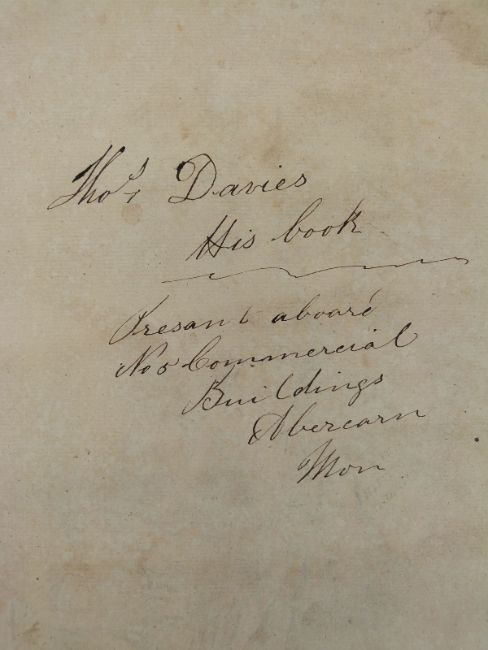 Thos Davies
His book
Presant aboard
No 5 Commercial
Buildings
Abercarn
Mon